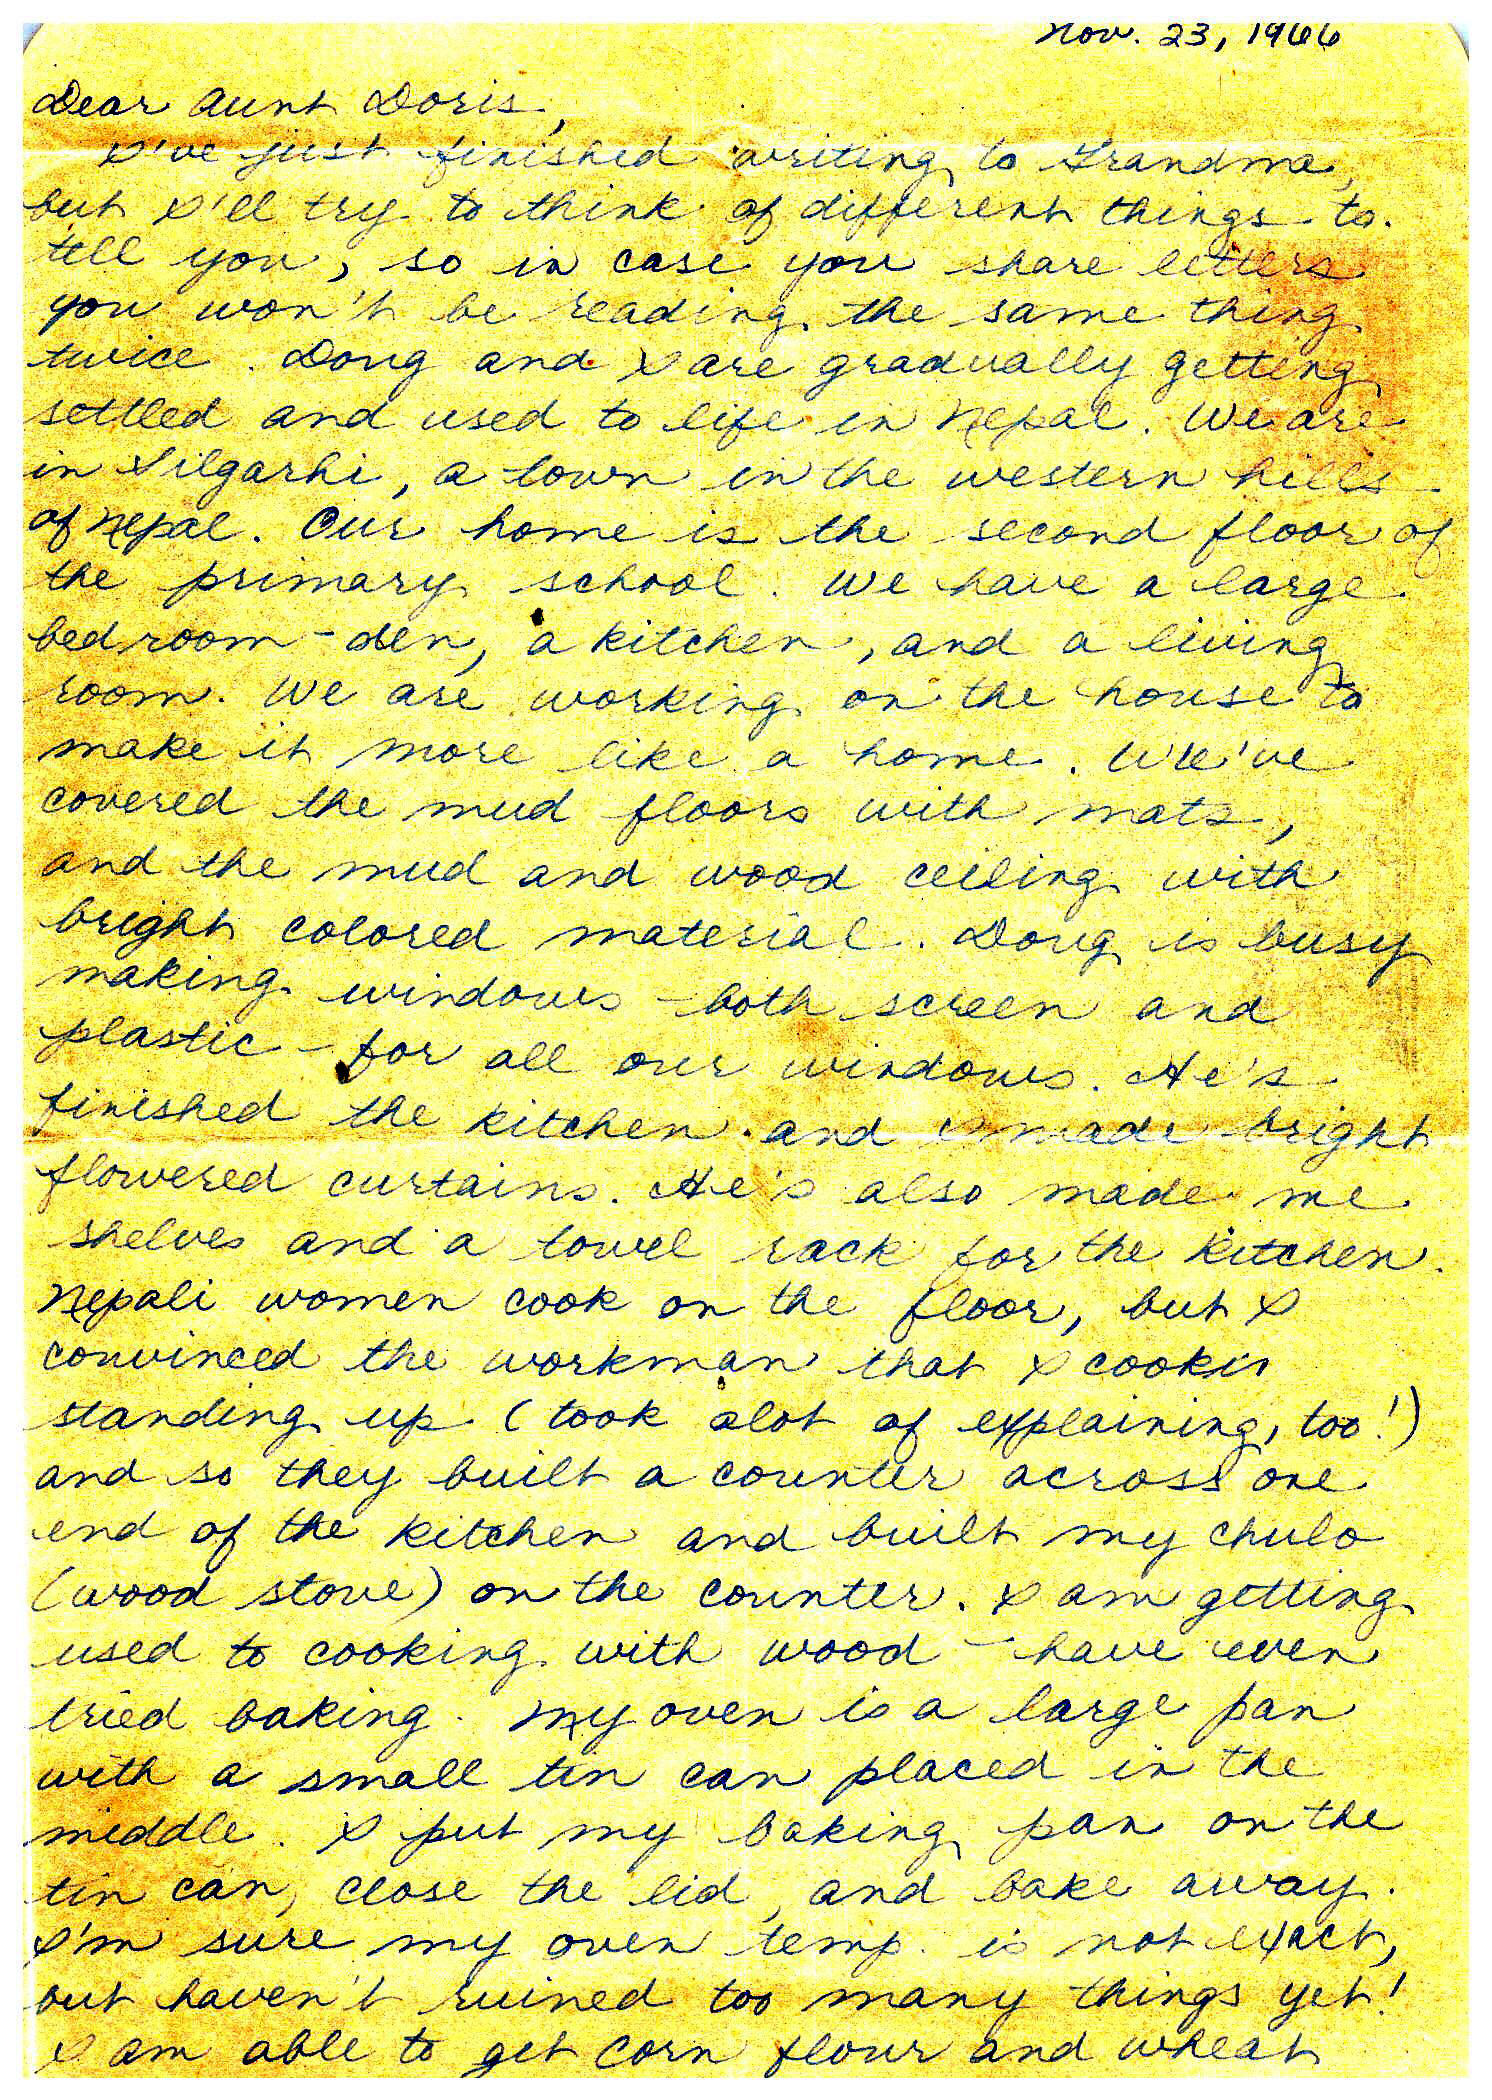 Nov. 23, 1966
Dear Aunt Doris,
I've just finished writing to Grandma,
but I'll try to think of different things to
tell you, so in case you share letters
you won't be reading the same thing
twice. Doug and I are gradually getting
settled and used to life in Nepal. We are
in Silgarhi, a town in the western hills
of Nepal. Our home is the second floor of
the primary school. We have a large
bedroom-den, a kitchen, and a living
room. We are working on the house to
make it more like a home. We've
covered the mud floors with mats,
and the mud and wood ceiling with
bright colored material. Doug is busy
making windows - both screen and
plastic - for all our windows. He's
finished the kitchen and I made bright
flowered curtains. He's also made me
shelves and a towel rack for the kitchen.
Nepali women cook on the floor, but I
convinced the workman that I cook
standing up (took alot of explaining, too!)
and so they built a counter across one
end of the kitchen and built my chulo
(wood stove) on the counter. I am getting
used to cooking with wood - have even
tried baking. My oven is a large pan
with a small tin can placed in the
middle. I put my baking pan on the
tin can, close the lid, and bake away.
I'm sure my oven temp. is not exact,
but haven't ruined too many things yet!
I am able to get corn flour and wheat